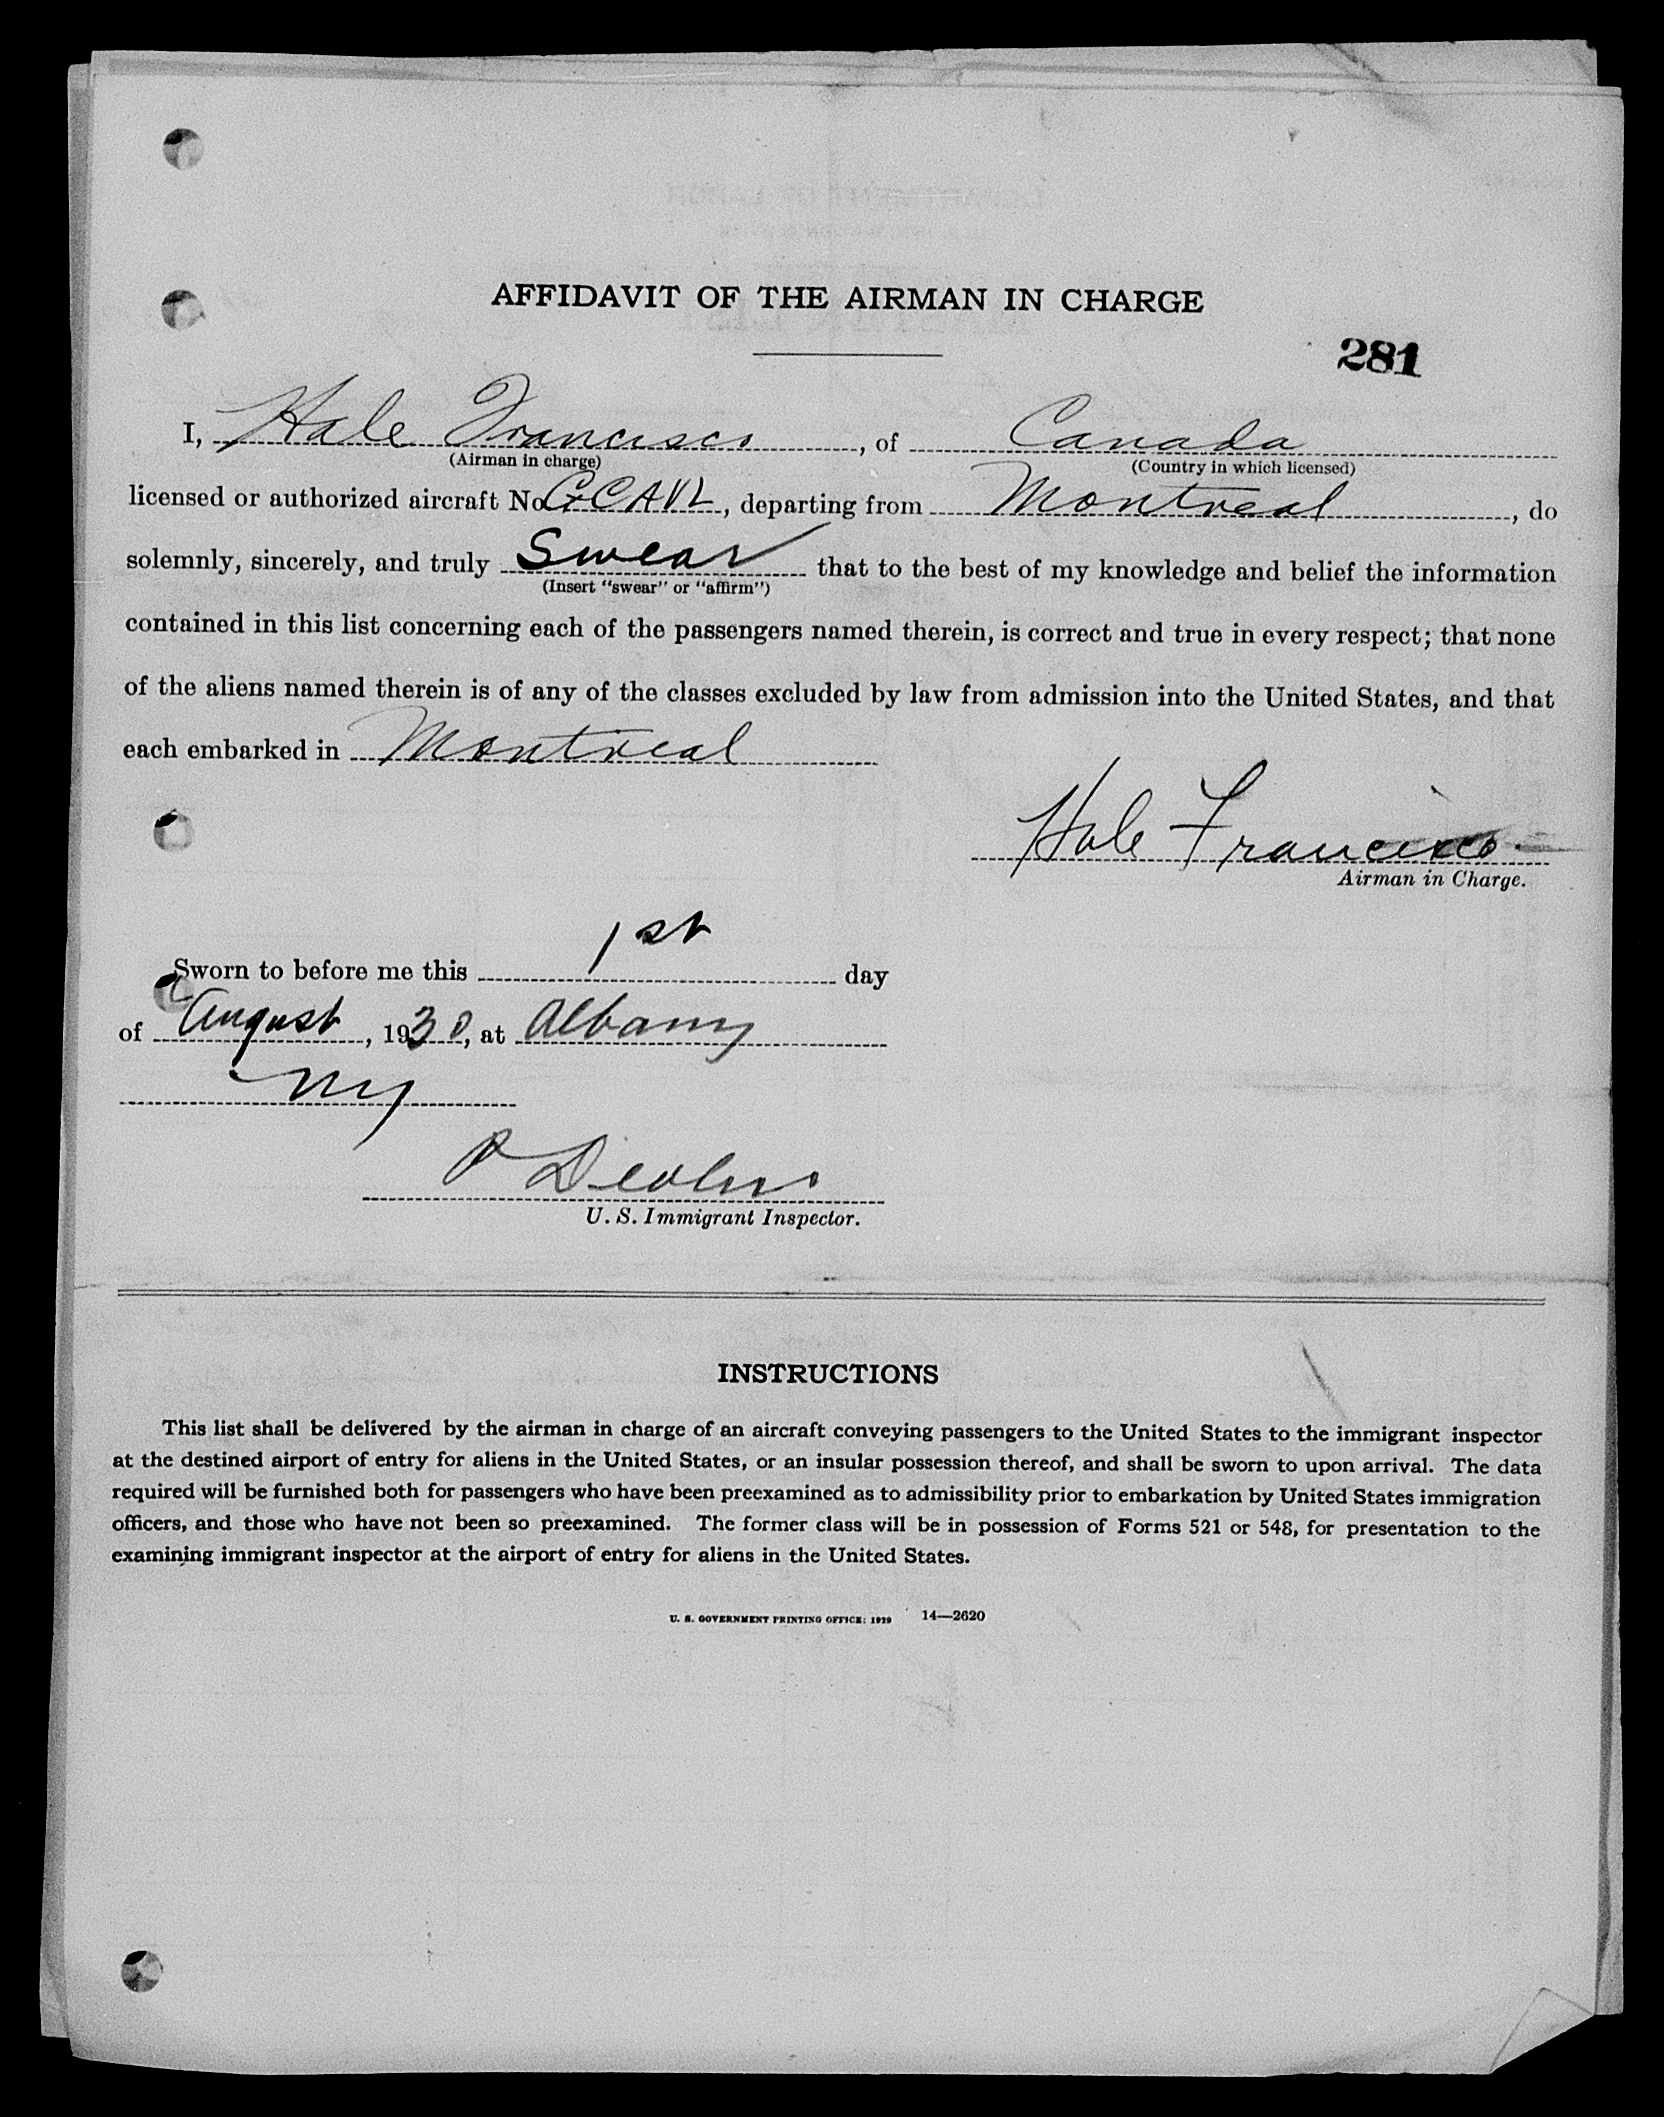 AFFIDAVIT OF THE AIRMAN IN CHARGE
281
I, Hale Francisco, of Canada
(Airman in charge) (Country in which licensed)
licensed or authorized aircraft No. G-CAVL, departing from Montreal, do
solemnly, sincerely, and truly Swear that to the best of my knowledge and belief the information
(Insert "swear" or "affirm")
contained in this list concerning each of the passengers named therein, is correct and true in every respect; that none
of the aliens named therein is of any of the classes excluded by law from admission into the United States, and that
each embarked in Montreal
Hale Francisco
Airman in Charge.
Sworn to before me this 1st day
of August, 1930, at Albany
NY
P
U. S. Immigrant Inspector.
INSTRUCTIONS
This list shall be delivered by the airman in charge of an aircraft conveying passengers to the United States to the immigrant inspector
at the destined airport of entry for aliens in the United States, or an insular possession thereof, and shall be sworn to upon arrival. The data
required will be furnished both for passengers who have been preexamined as to admissibility prior to embarkation by United States immigration
officers, and those who have not been so preexamined. The former class will be in possession of Forms 521 or 548, for presentation to the
examining immigrant inspector at the airport of entry for aliens in the United States.
U. S. GOVERNMENT PRINTING OFFICE: 1929 14—2620